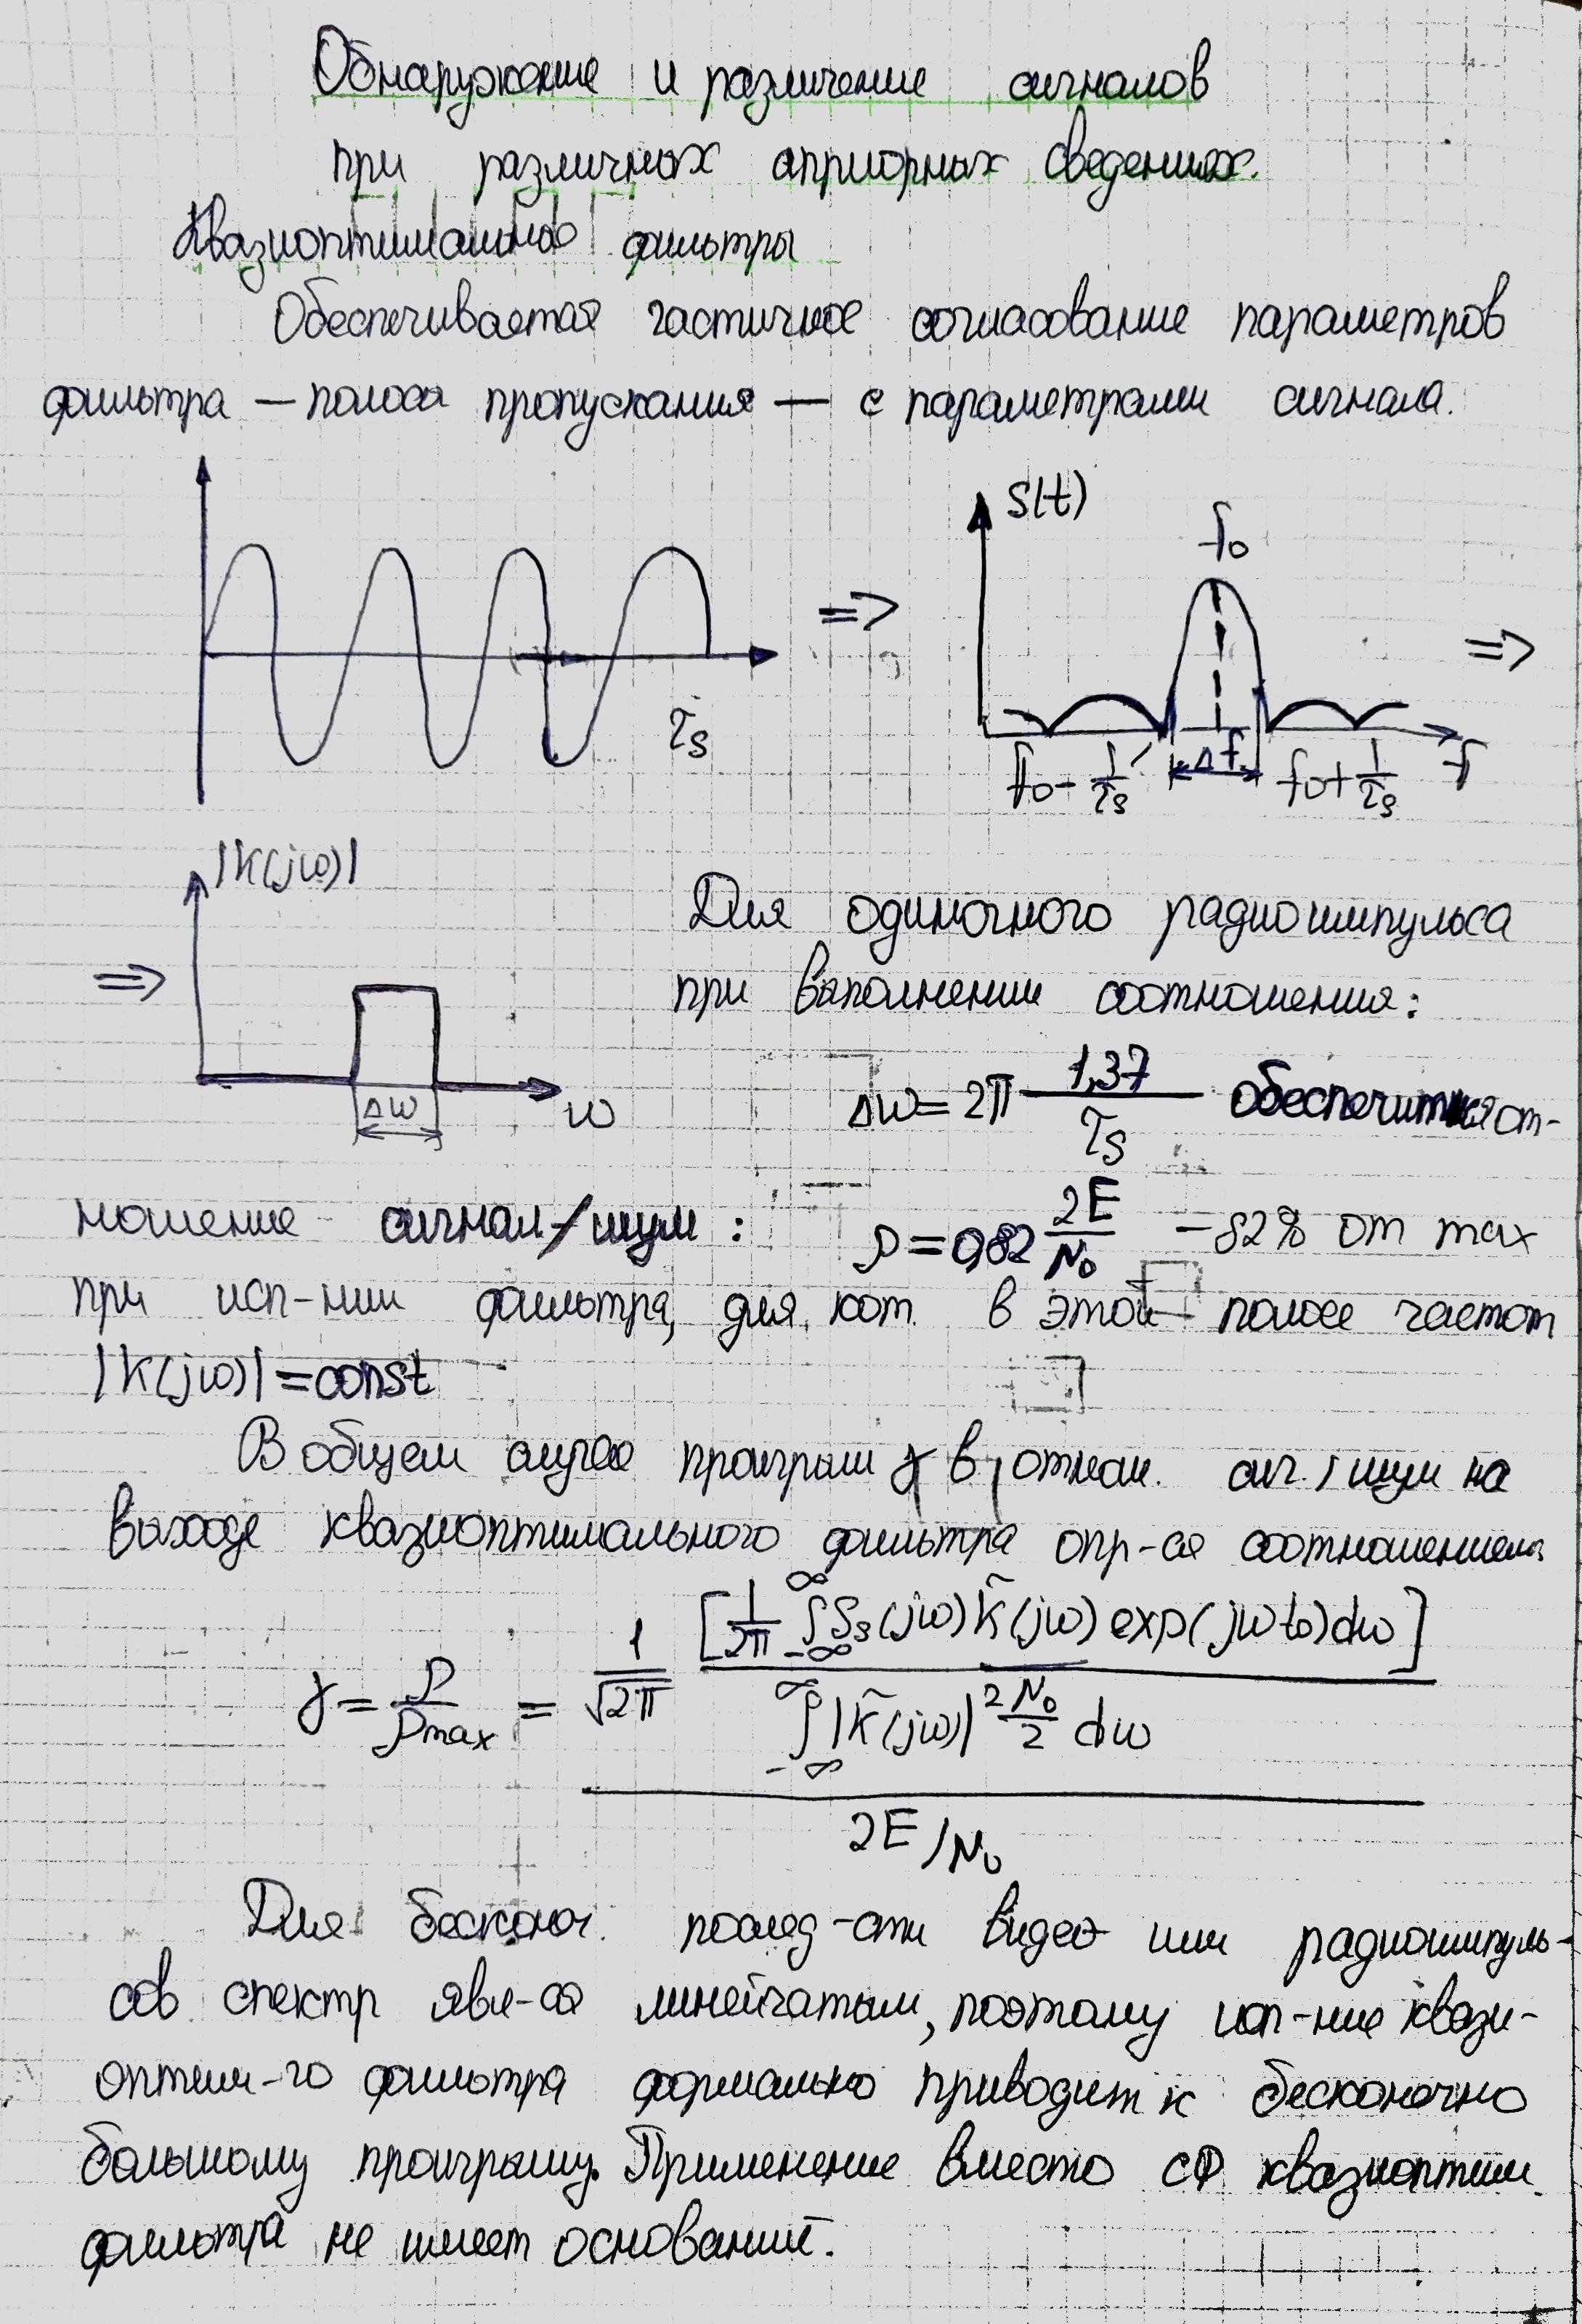 Обнаружение и различение сигналов
при различных априорных сведениях.
Квазиоптимальные фильтры
Обеспечивается частичное согласование параметров
фильтра — полоса пропускания — с параметрами сигнала.
τs
=>
S(t)
f₀
=>
f₀ - 1/τs
Δf
f₀ + 1/τs
f
=>
|K(jω)|
Δω
ω
Для одиночного радиоимпульса
при выполнении соотношения:
Δω = 2π 1,37/τs обеспечится от-
ношение сигнал/шум: ρ = 0,82 2E/N₀ — 82% от max
при исп-нии фильтра, для кот. в этой полосе частот
|K(jω)| = const
В общем случае проигрыш γ в отнош. сиг./шум на
выходе квазиоптимального фильтра опр-ся соотношением:
γ = ρ/ρmax = 1/√2π [1/2π ∫_{-∞}^{∞} Ss(jω) K̃(jω) exp(jωt₀)dω]
∫_{-∞}^{∞} |K̃(jω)|² N₀/2 dω
2E/N₀
Для бесконеч. послед-сти видео или радиоимпуль-
сов спектр явл-ся линейчатым, поэтому исп-ние квази-
оптим-го фильтра формально приводит к бесконечно
большому проигрышу. Применение вместо СФ квазиоптим.
фильтра не имеет оснований.